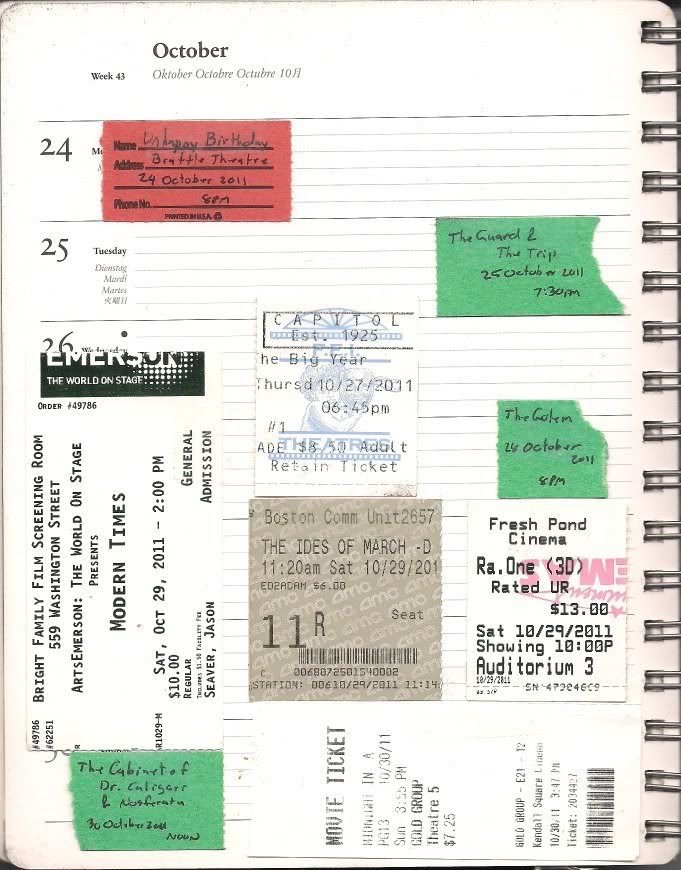 October
Week 43
Oktober Octobre Octubre 10月
24
Name Unhappy Birthday
Address Brattle Theatre
24 October 2011
Phone No. 8pm
PRINTED IN U.S.A.
25
Tuesday
Dienstag
Mardi
Martes
火曜日
The Guard &
The Trip
25 October 2011
7:30pm
26
EMERSON
THE WORLD ON STAGE
ORDER #49786
BRIGHT FAMILY FILM SCREENING ROOM
559 WASHINGTON STREET
ARTSEMERSON: THE WORLD ON STAGE
PRESENTS
MODERN TIMES
SAT, OCT 29, 2011 - 2:00 PM
$10.00
REGULAR
INCLUDES $1.50 FACILITY FEE
SEAVER, JASON
GENERAL
ADMISSION
#49786
#62251
R1029-M
CAPITOL
Est. 1925
he Big Year
Thursd 10/27/2011
06:45pm
#1
THEATRES
ADE $8.50 Adult
Retain Ticket
The Golem
28 October
2011
8PM
Boston Comm Unit2657
THE IDES OF MARCH -D
11:20am Sat 10/29/201
ED2ADAM $6.00
11R
Seat
C 0068072501540002
STATION: 006 10/29/2011 11:14
Fresh Pond
Cinema
Ra.One (3D)
Rated UR
$13.00
Sat 10/29/2011
Showing 10:00P
Auditorium 3
10/29/2011
SN 479246C9
The Cabinet of
Dr. Caligari
& Nosferatu
30 October 2011
NOON
MOVIE TICKET
MIDNIGHT IN A
PG13 10/30/11
Sun 3:55 PM
GOLD GROUP
Theatre 5
$7.25
GOLD GROUP - E21 - T2
Kendall Square Cinema
10/30/11 3:47 PM
Ticket: 2094427